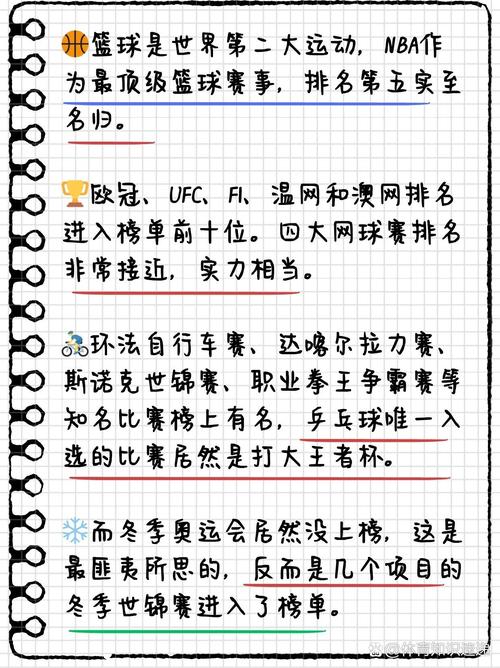 🏀篮球是世界第二大运动，NBA作
为最顶级篮球赛事，排名第五实至
名归。
🏆欧冠、UFC、F1、温网和澳网排名
进入榜单前十位。四大网球赛排名
非常接近，实力相当。
🚴环法自行车赛、达喀尔拉力赛、
斯诺克世锦赛、职业拳王争霸赛等
知名比赛榜上有名，乒乓球唯一入
选的比赛居然是打大王者杯。
❄️而冬季奥运会居然没上榜，这是
最匪夷所思的，反而是几个项目的
冬季世锦赛进入了榜单。